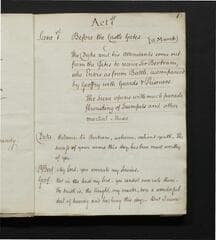 Act 1st
Scene 1st Before the Castle Gates. (a March)
The Duke and his attendants come out
from the Gates to receive Sir Bertram,
who Enters as from Battle, accompanied
by Geoffry with Guards & Prisoners.
The scene opens with much parade
flourishing of Trumpets and other
martial Music
Duke Welcome Sir Bertram, welcome, valiant youth. The
of arms around this day has been most worthy
of you.
Bert My lord, you my
Geof. Not in the least my lord. you cannot over rate them.
the truth is, the knight, my master, has a wonderful
deal of bravery and has been this day.